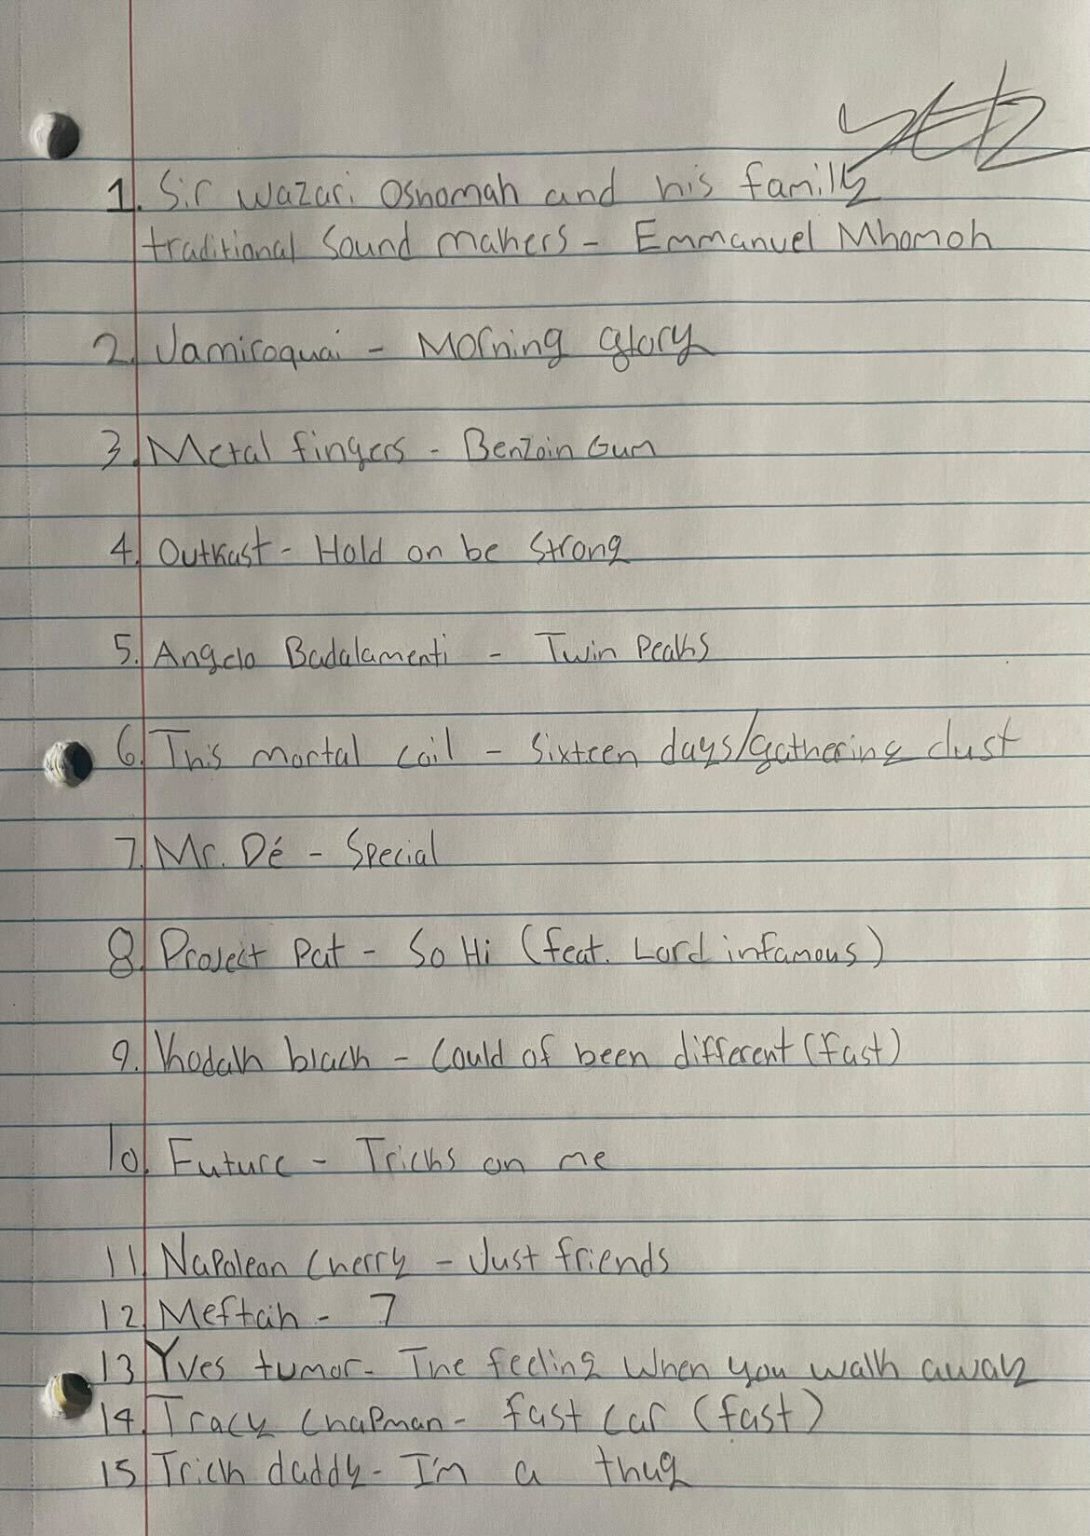 1. Sir Wazari Oshomah and his family
traditional Sound makers - Emmanuel Mhomoh
2. Jamiroquai - Morning glory
3. Metal fingers - Benzoin Gum
4. Outkast - Hold on be strong
5. Angelo Badalamenti - Twin Peaks
6. This mortal coil - Sixteen days/gathering dust
7. Mr. Dé - Special
8. Project Pat - So Hi (feat. Lord infamous)
9. Khodak black - Could of been different (fast)
10. Future - Tricks on me
11. Napolean Cherry - Just friends
12. Meftah - 7
13. Yves tumor - The feeling when you walk away
14. Tracy Chapman - fast car (fast)
15. Trick daddy - I'm a thug